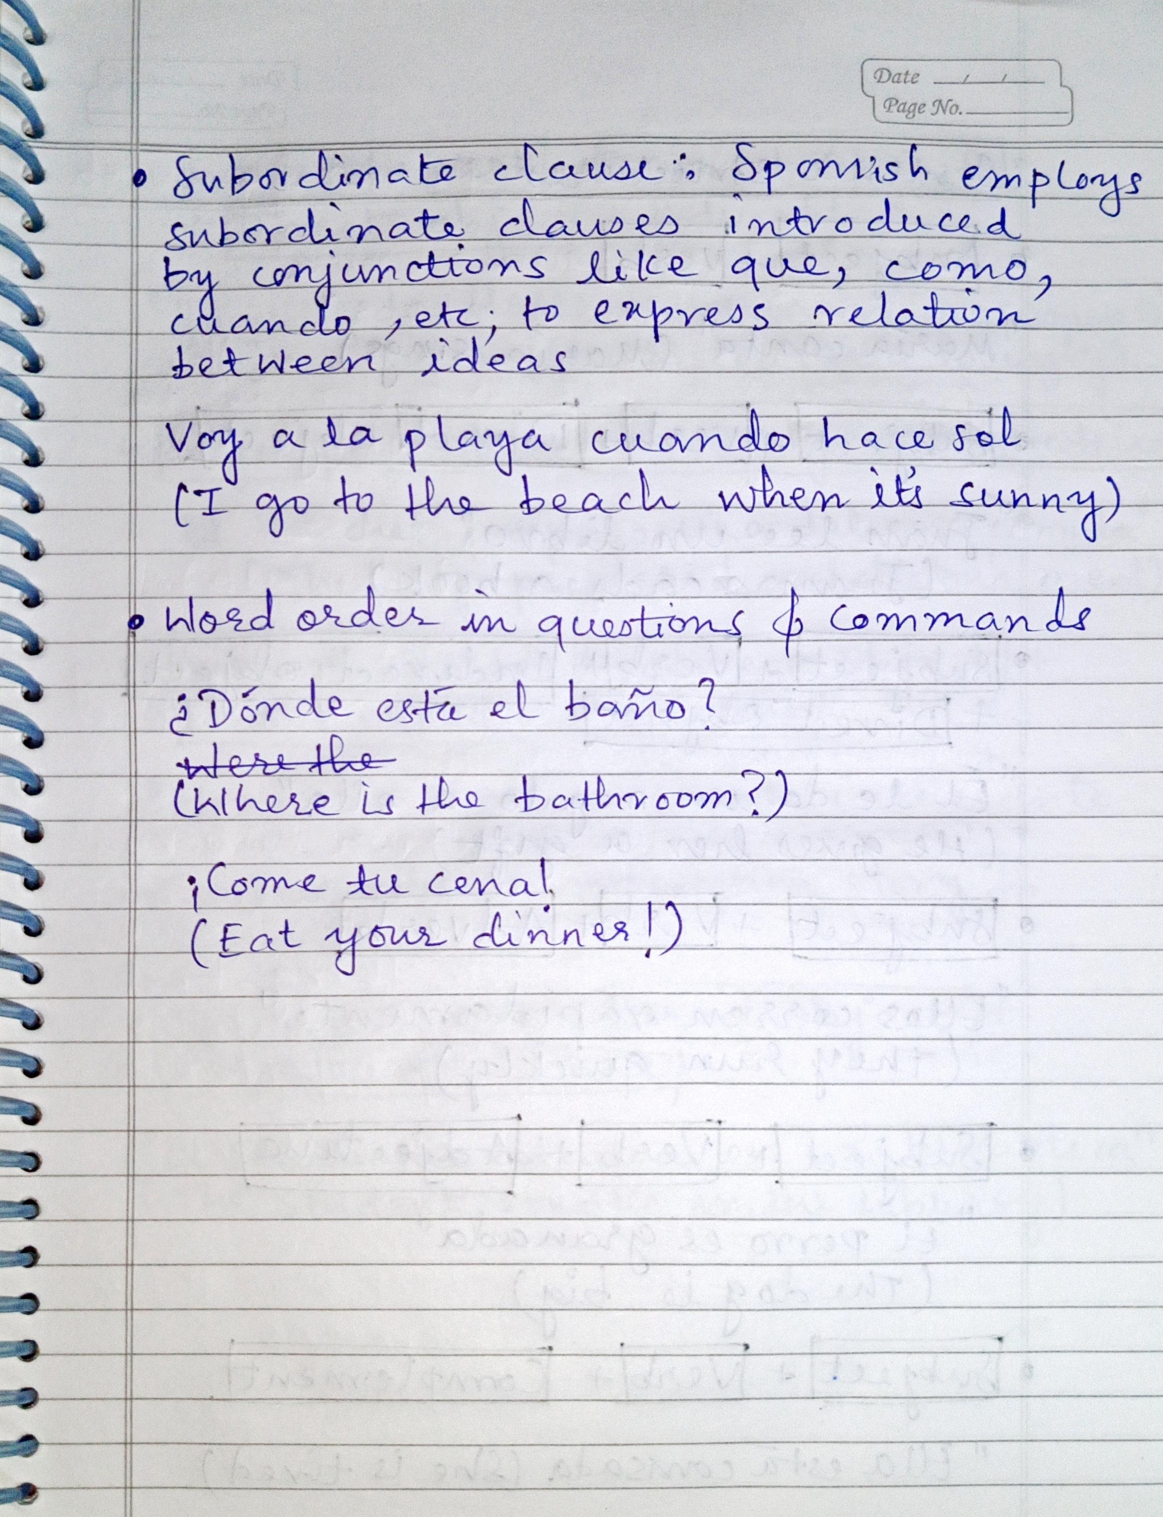 Date __/__/__
Page No.______
• Subordinate clause: Spanish employs
subordinate clauses introduced
by conjunctions like que, como,
cuando, etc; to express relation
between ideas
Voy a la playa cuando hace sol
(I go to the beach when it's sunny)
• Word order in questions & commands
¿Dónde está el baño?
Were the
(Where is the bathroom?)
¡Come tu cena!
(Eat your dinner!)